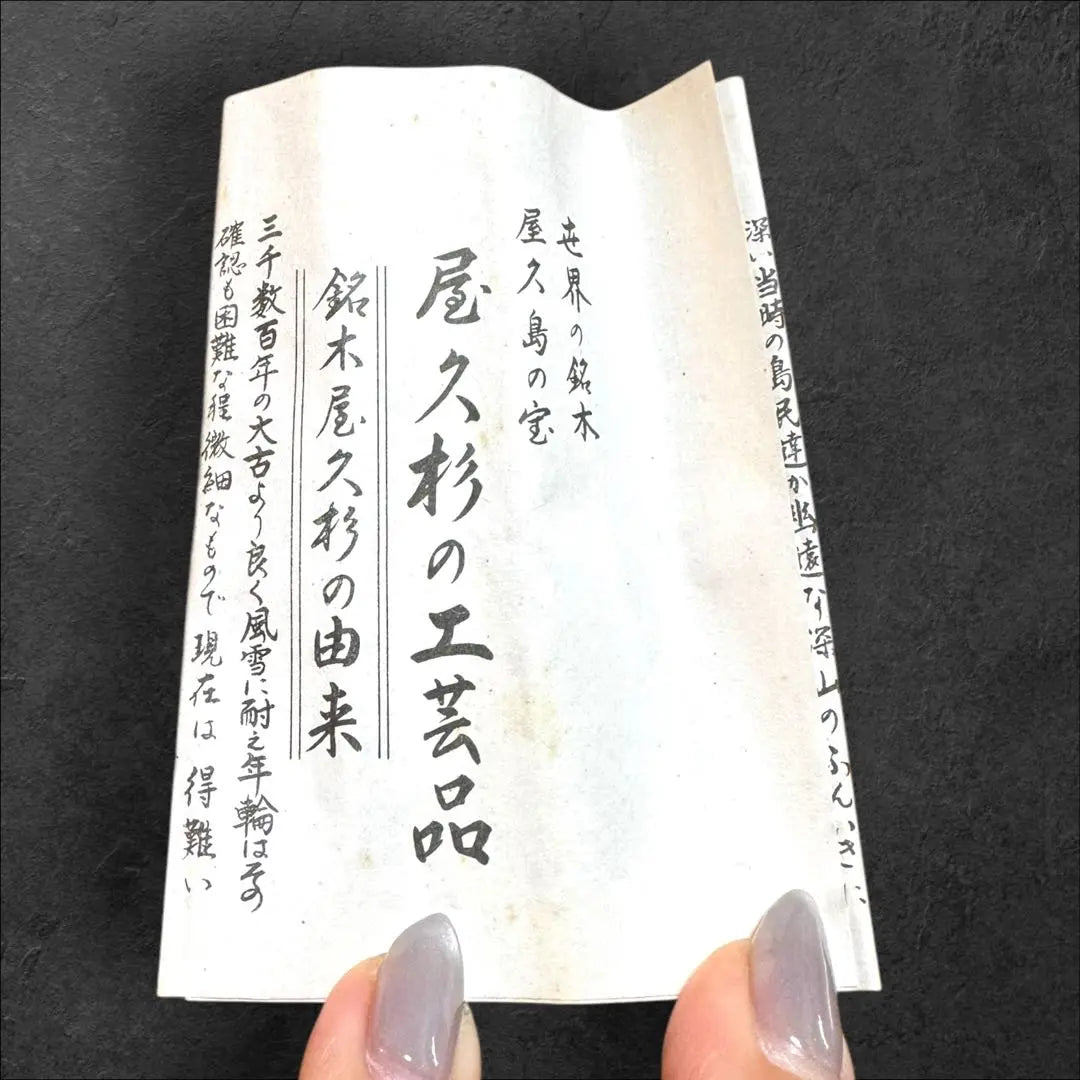 世界の銘木
屋久島の宝
屋久杉の工芸品
銘木屋久杉の由来
三千数百年の大古より良く風雪に耐え年輪はその
確認も困難な程微細なもので現在は得難い
深い当時の島民達が幽遠な深山のふんいきに